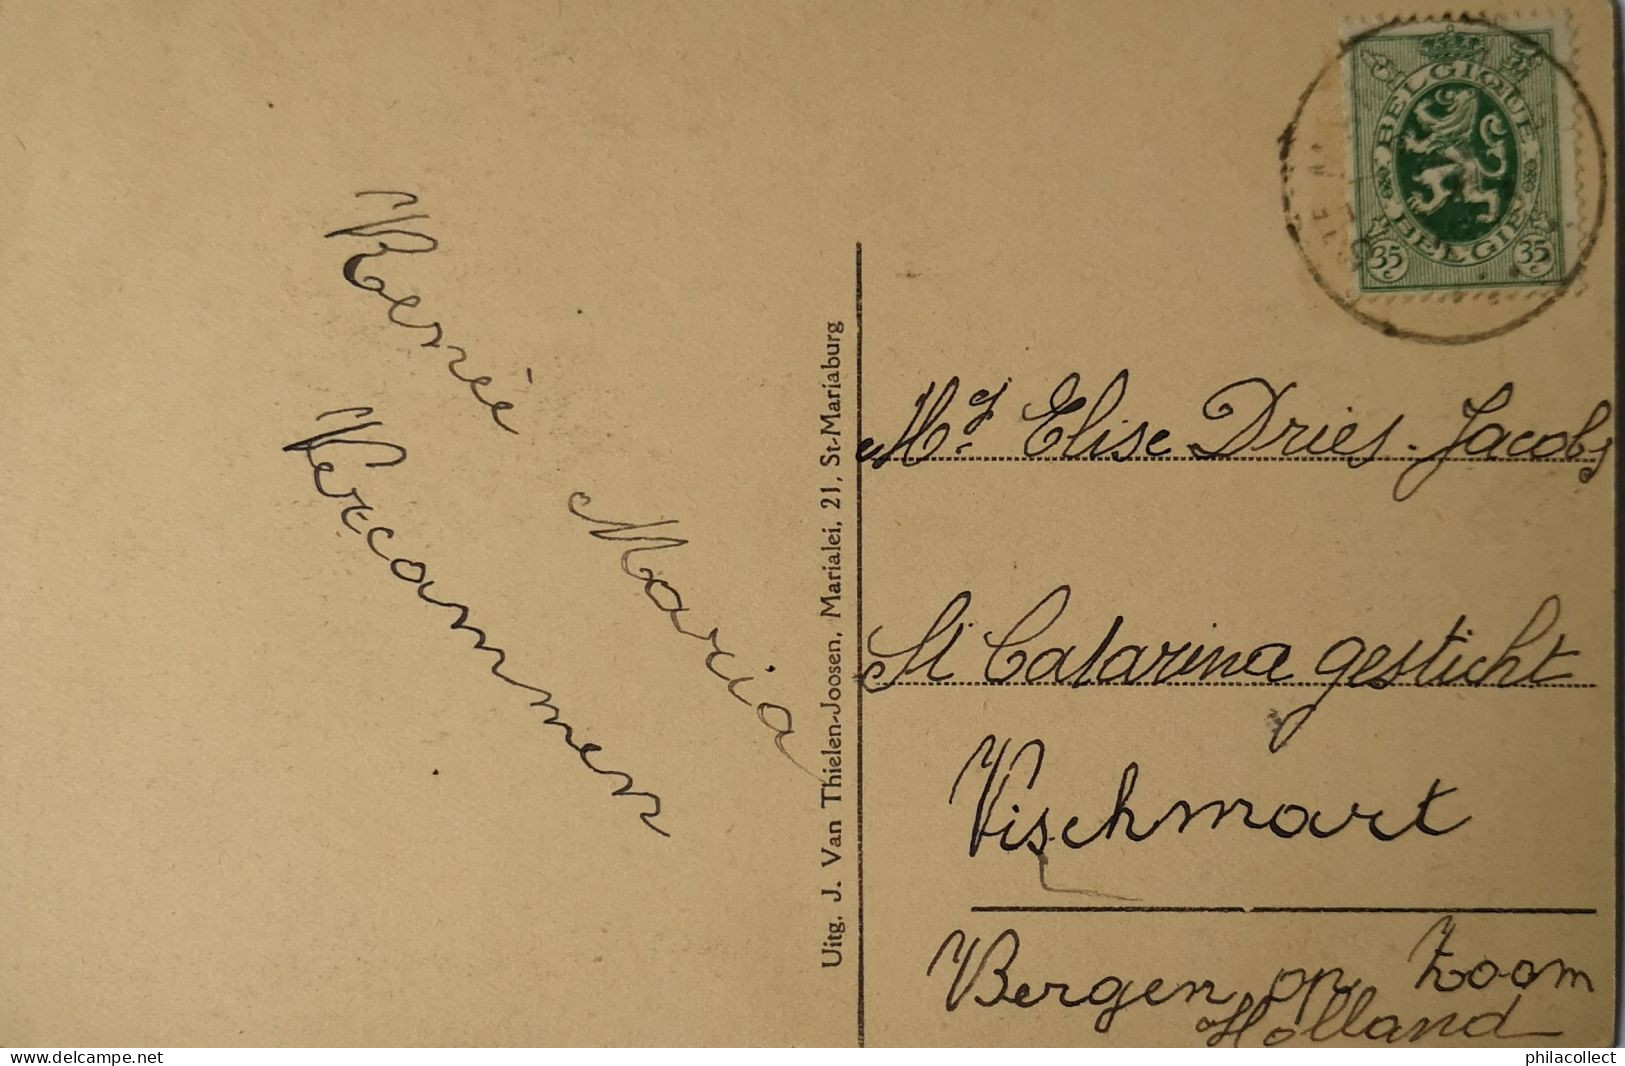 Renée Maria
Vercammen
Uitg. J. Van Thielen-Joosen, Marialei, 21, St-Mariaburg
BELGIQUE
BELGIË
35 c 35 c
Mr. Elise Dries-Jacobs
St Catarina gesticht
Vischmart
Bergen op Zoom
Holland
www.delcampe.net
philacollect